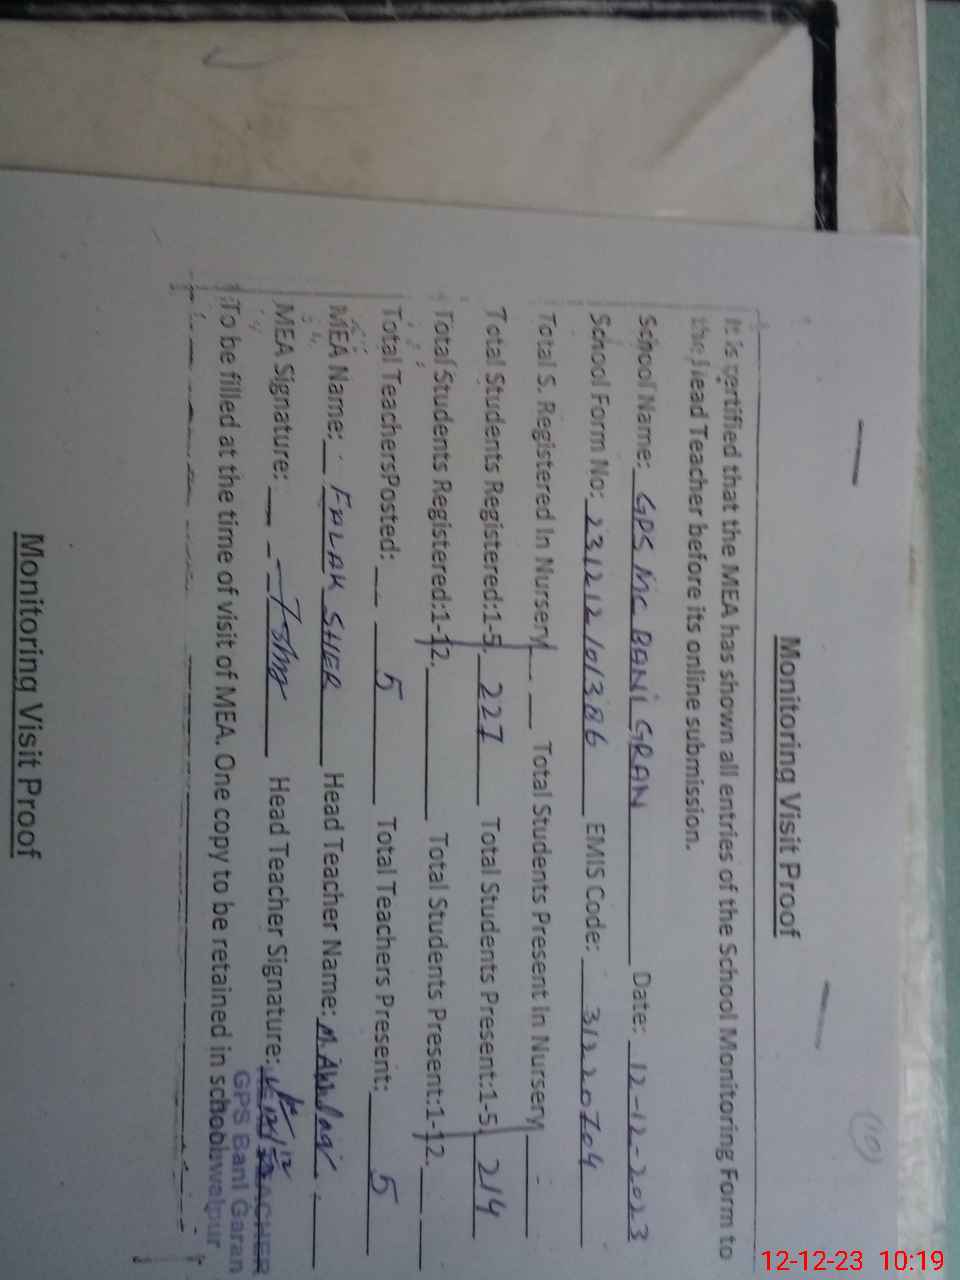 (10)
Monitoring Visit Proof
It is certified that the MEA has shown all entries of the School Monitoring Form to
the Head Teacher before its online submission.
School Name: GPS MC BANI GRAN Date: 12-12-2023
School Form No: 231212101386 EMIS Code: 31220704
Total S. Registered In Nursery Total Students Present In Nursery -
Total Students Registered:1-5. 227 Total Students Present:1-5. 214
Total Students Registered:1-12. Total Students Present:1-12.
Total TeachersPosted: 5 Total Teachers Present: 5
MEA Name: FALAK SHER Head Teacher Name: M.
MEA Signature: Head Teacher Signature: 12/12
TEACHER
To be filled at the time of visit of MEA. One copy to be retained in school.
GPS Bani Garan
Monitoring Visit Proof
12-12-23 10:19